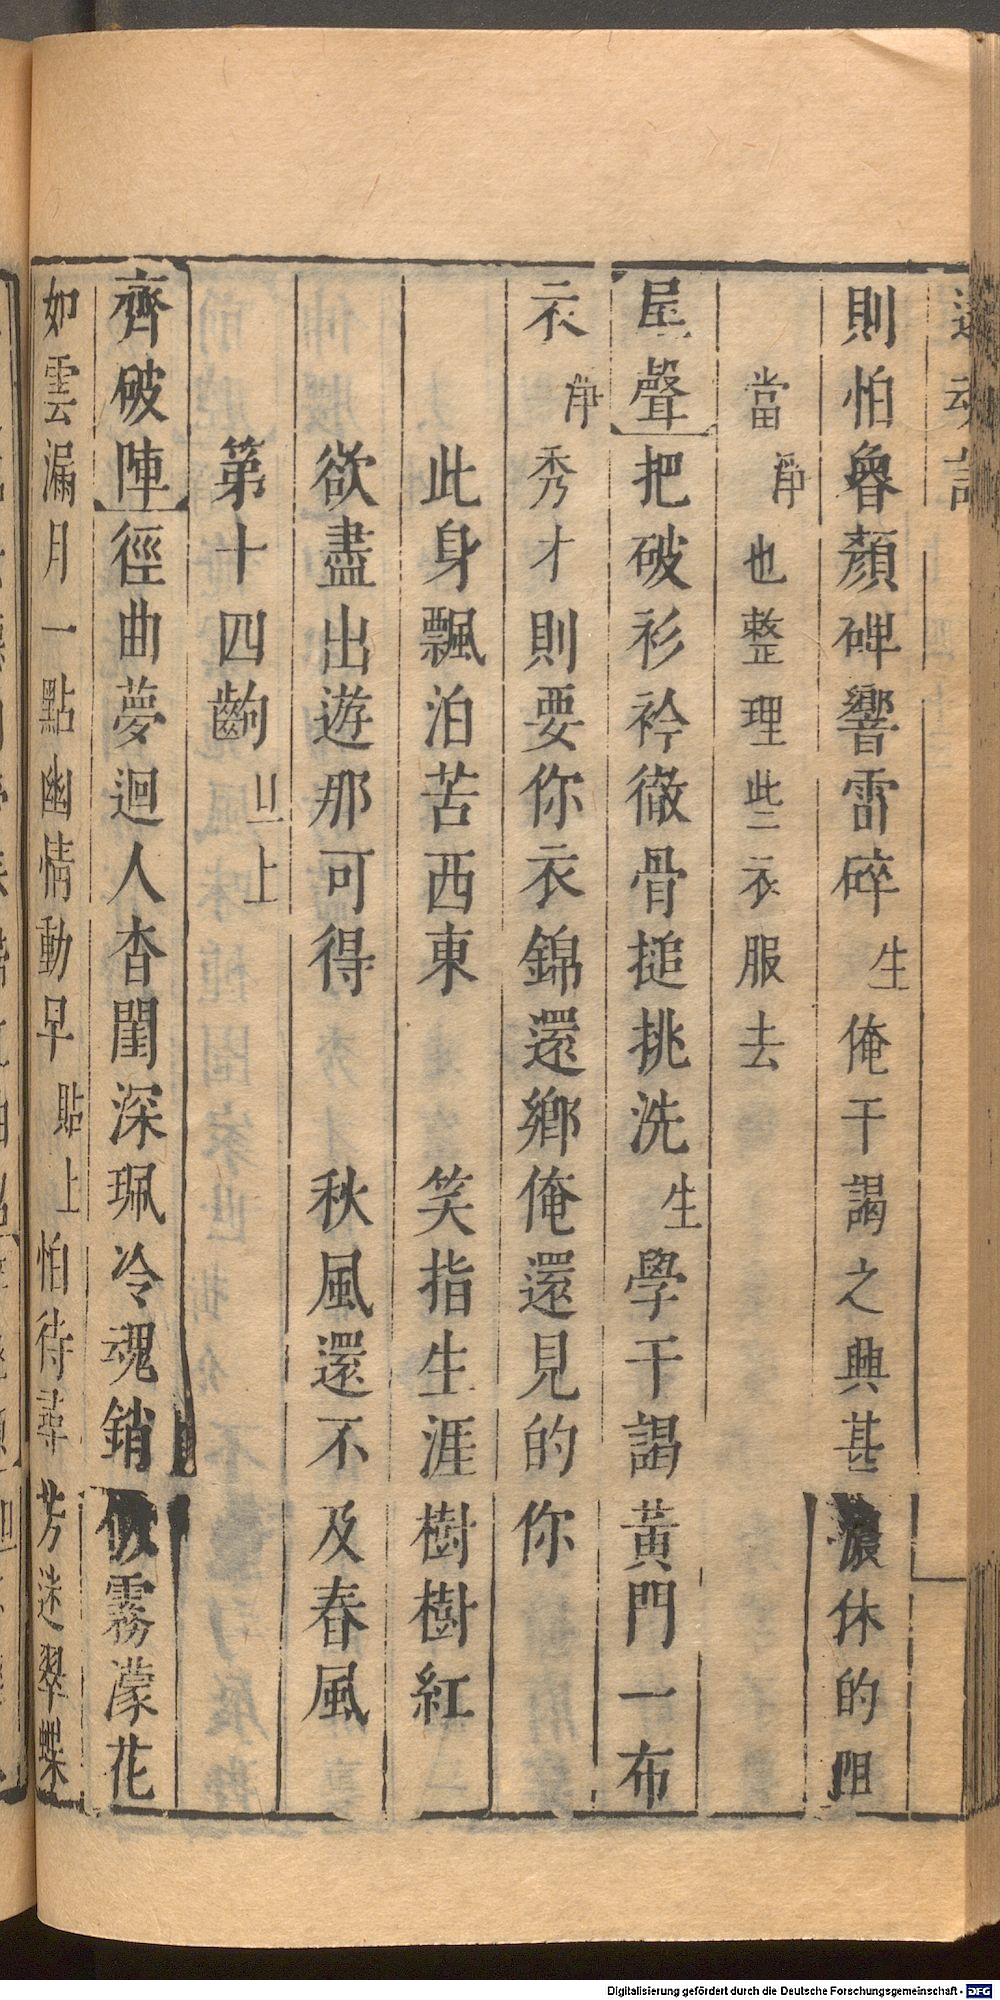 則怕魯顏碑響雷碎生俺干謁之興甚濃休的阻
當淨也整理些衣服去
尾聲把破衫衿徹骨搥挑洗生學干謁黃門一布
衣淨秀才則要你衣錦還鄉俺還見的你
此身飄泊苦西東 笑指生涯樹樹紅
欲盡出遊那可得 秋風還不及春風
第十四齣 旦上
齊破陣徑曲夢迴人杳閨深珮冷魂銷似霧濛花
如雲漏月一點幽情動早貼上怕待尋芳迷翠蝶
Digitalisierung gefördert durch die Deutsche Forschungsgemeinschaft - DFG